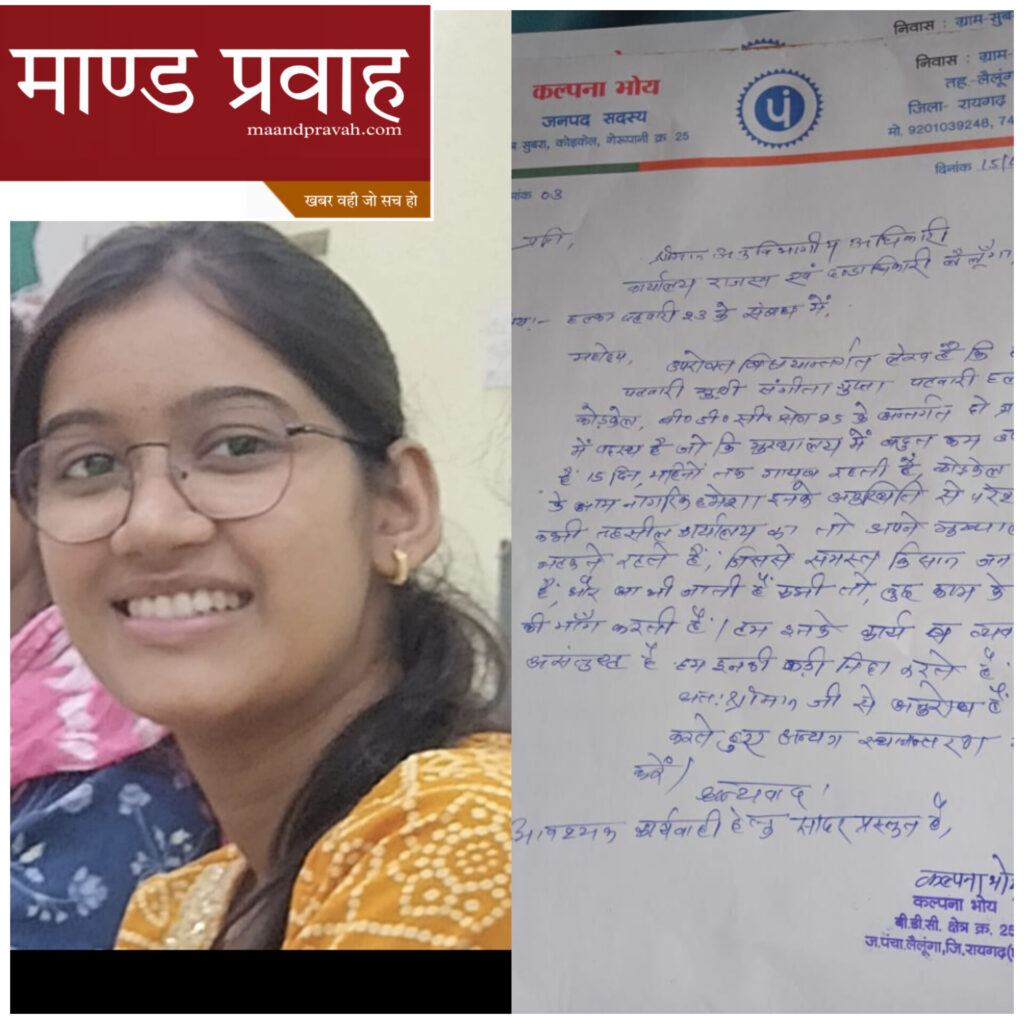 माण्ड प्रवाह
maandpravah.com
खबर वही जो सच हो
निवास : ग्राम-सुब
निवास : ग्राम-
तह.-लैलूंग
जिला- रायगढ़
मो. 9201039248, 74
कल्पना भोय
जनपद सदस्य
सुबरा, कोड़केल, गेरूपानी क्र 25
दिनांक 15/
03
प्रति,
श्रीमान अनुविभागीय अधिकारी
कार्यालय राजस्व एवं दण्डाधिकारी लैलूँगा
:- हल्का पटवारी 23 के संबंध में,
महोदय, उपरोक्त विषयान्तर्गत लेख है कि
पटवारी सुश्री संगीता गुप्ता पटवारी
कोड़केल, बी०डी०सी० क्षेत्र 25 के अन्तर्गत दो
में पदस्थ है जो कि मुख्यालय में बहुत कम
हैं 15 दिन, महिनों तक गायब रहती है, कोड़केल
के आम नागरिक हमेशा इनके अनुपस्थिति से
कभी तहसील कार्यालय का तो अपने
भटकते रहते हैं, जिससे समस्त किसान जन
हैं, और आ भी जाती हैं कभी तो, कुछ काम के
की माँग करती हैं। हम इनके कार्य व
असंतुष्ट है हम इनकी कड़ी निंदा करते है
अतः श्रीमान जी से अनुरोध हैं
करते हुए अन्यत्र स्थानान्तरण
करें।
धन्यवाद।
आवश्यक कार्यवाही हेतु सादर प्रस्तुत है,
कल्पना भोय
कल्पना भोय
बी.डी.सी. क्षेत्र क्र. 25
ज.पंचा.लैलूंगा, जि.रायगढ़